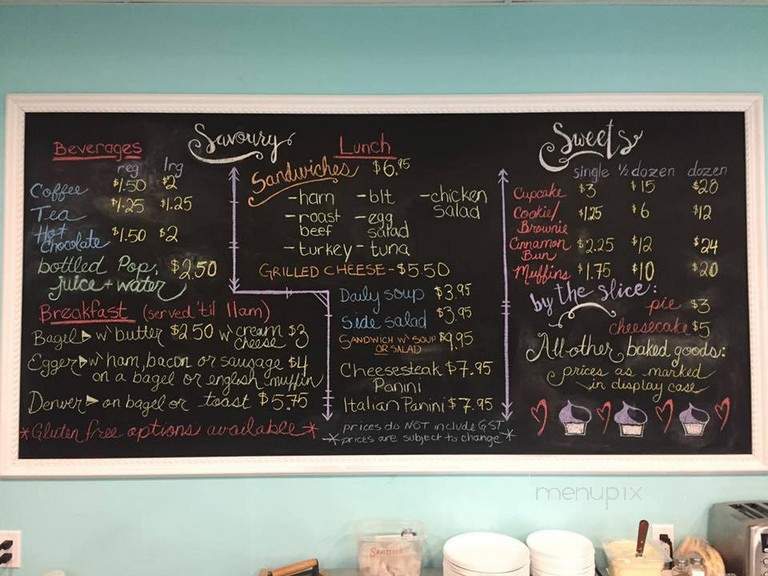 Savoury
Beverages
reg lrg
Coffee $1.50 $2
Tea $1.25 $1.25
Hot Chocolate $1.50 $2
bottled Pop, juice + water $2.50
Breakfast (served 'til 11am)
Bagel w/ butter $2.50 w/ cream cheese $3
Egger w/ ham, bacon or sausage $4
on a bagel or english muffin
Denver on bagel or toast $5.75
*Gluten free options available*
Lunch
Sandwiches $6.95
-ham -blt -chicken salad
-roast beef -egg salad
-turkey -tuna
GRILLED CHEESE - $5.50
Daily soup $3.95
side salad $3.95
SANDWICH W/ SOUP OR SALAD $9.95
Cheesesteak Panini $7.95
Italian Panini $7.95
*prices do NOT include GST
prices are subject to change*
Sweets
single 1/2 dozen dozen
Cupcake $3 $15 $28
Cookie/ Brownie $1.25 $6 $12
Cinnamon Bun $2.25 $12 $24
Muffins $1.75 $10 $20
by the slice:
pie $3
cheesecake $5
All other baked goods:
prices as marked
in display case
menupix